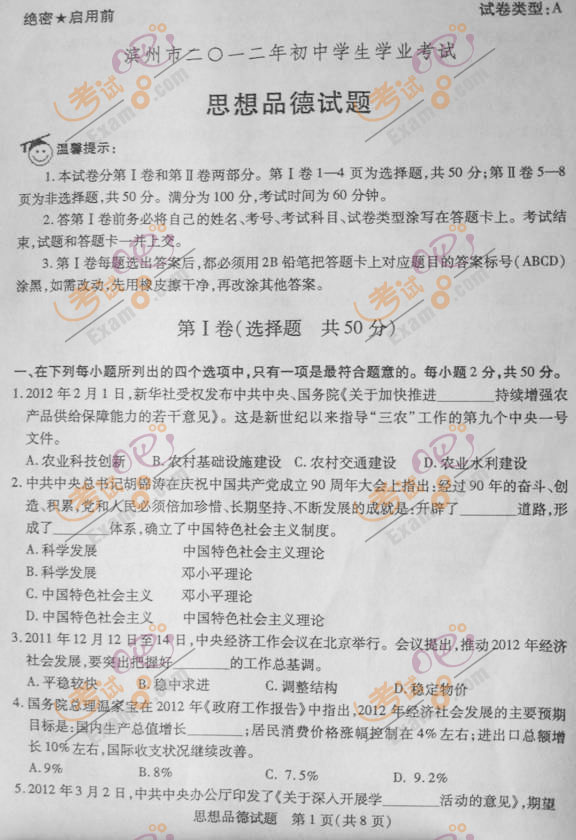 绝密★启用前
试卷类型:A
滨州市二〇一二年初中学生学业考试
思想品德试题
温馨提示:
1.本试卷分第Ⅰ卷和第Ⅱ卷两部分。第Ⅰ卷1—4页为选择题,共50分;第Ⅱ卷5—8
页为非选择题,共50分。满分为100分,考试时间为60分钟。
2.答第Ⅰ卷前务必将自己的姓名、考号、考试科目、试卷类型涂写在答题卡上。考试结
束,试题和答题卡一并上交。
3.第Ⅰ卷每题选出答案后,都必须用2B铅笔把答题卡上对应题目的答案标号(ABCD)
涂黑,如需改动,先用橡皮擦干净,再改涂其他答案。
第Ⅰ卷(选择题 共50分)
一、在下列每小题所列出的四个选项中,只有一项是最符合题意的。每小题2分,共50分。
1.2012年2月1日,新华社受权发布中共中央、国务院《关于加快推进________持续增强农
产品供给保障能力的若干意见》。这是新世纪以来指导“三农”工作的第九个中央一号
文件。
A.农业科技创新 B.农村基础设施建设 C.农村交通建设 D.农业水利建设
2.中共中央总书记胡锦涛在庆祝中国共产党成立90周年大会上指出:经过90年的奋斗、创
造、积累,党和人民必须倍加珍惜、长期坚持、不断发展的成就是:开辟了________道路,形
成了________体系,确立了中国特色社会主义制度。
A.科学发展 中国特色社会主义理论
B.科学发展 邓小平理论
C.中国特色社会主义 邓小平理论
D.中国特色社会主义 中国特色社会主义理论
3.2011年12月12日至14日,中央经济工作会议在北京举行。会议提出,推动2012年经济
社会发展,要突出把握好________的工作总基调。
A.平稳较快 B.稳中求进 C.调整结构 D.稳定物价
4.国务院总理温家宝在2012年《政府工作报告》中指出,2012年经济社会发展的主要预期
目标是:国内生产总值增长________;居民消费价格涨幅控制在4%左右;进出口总额增
长10%左右,国际收支状况继续改善。
A.9% B.8% C.7.5% D.9.2%
5.2012年3月2日,中共中央办公厅印发了《关于深入开展学________活动的意见》,期望
思想品德试题 第1页(共8页)